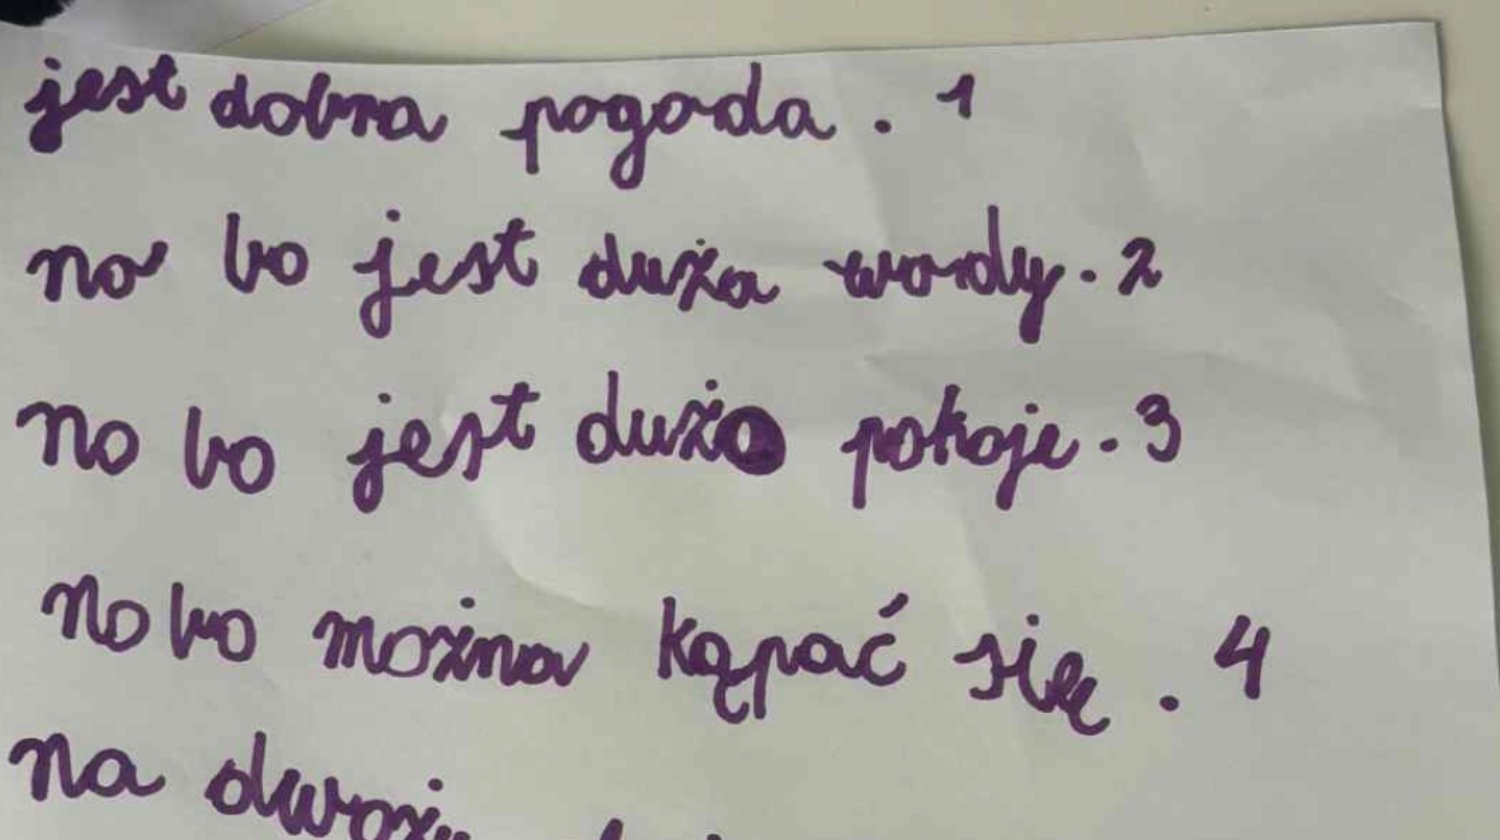 jest dobra pogoda. 1
no bo jest duża wody. 2
no bo jest dużo pokoje. 3
no bo można kąpać się. 4
na dwożu